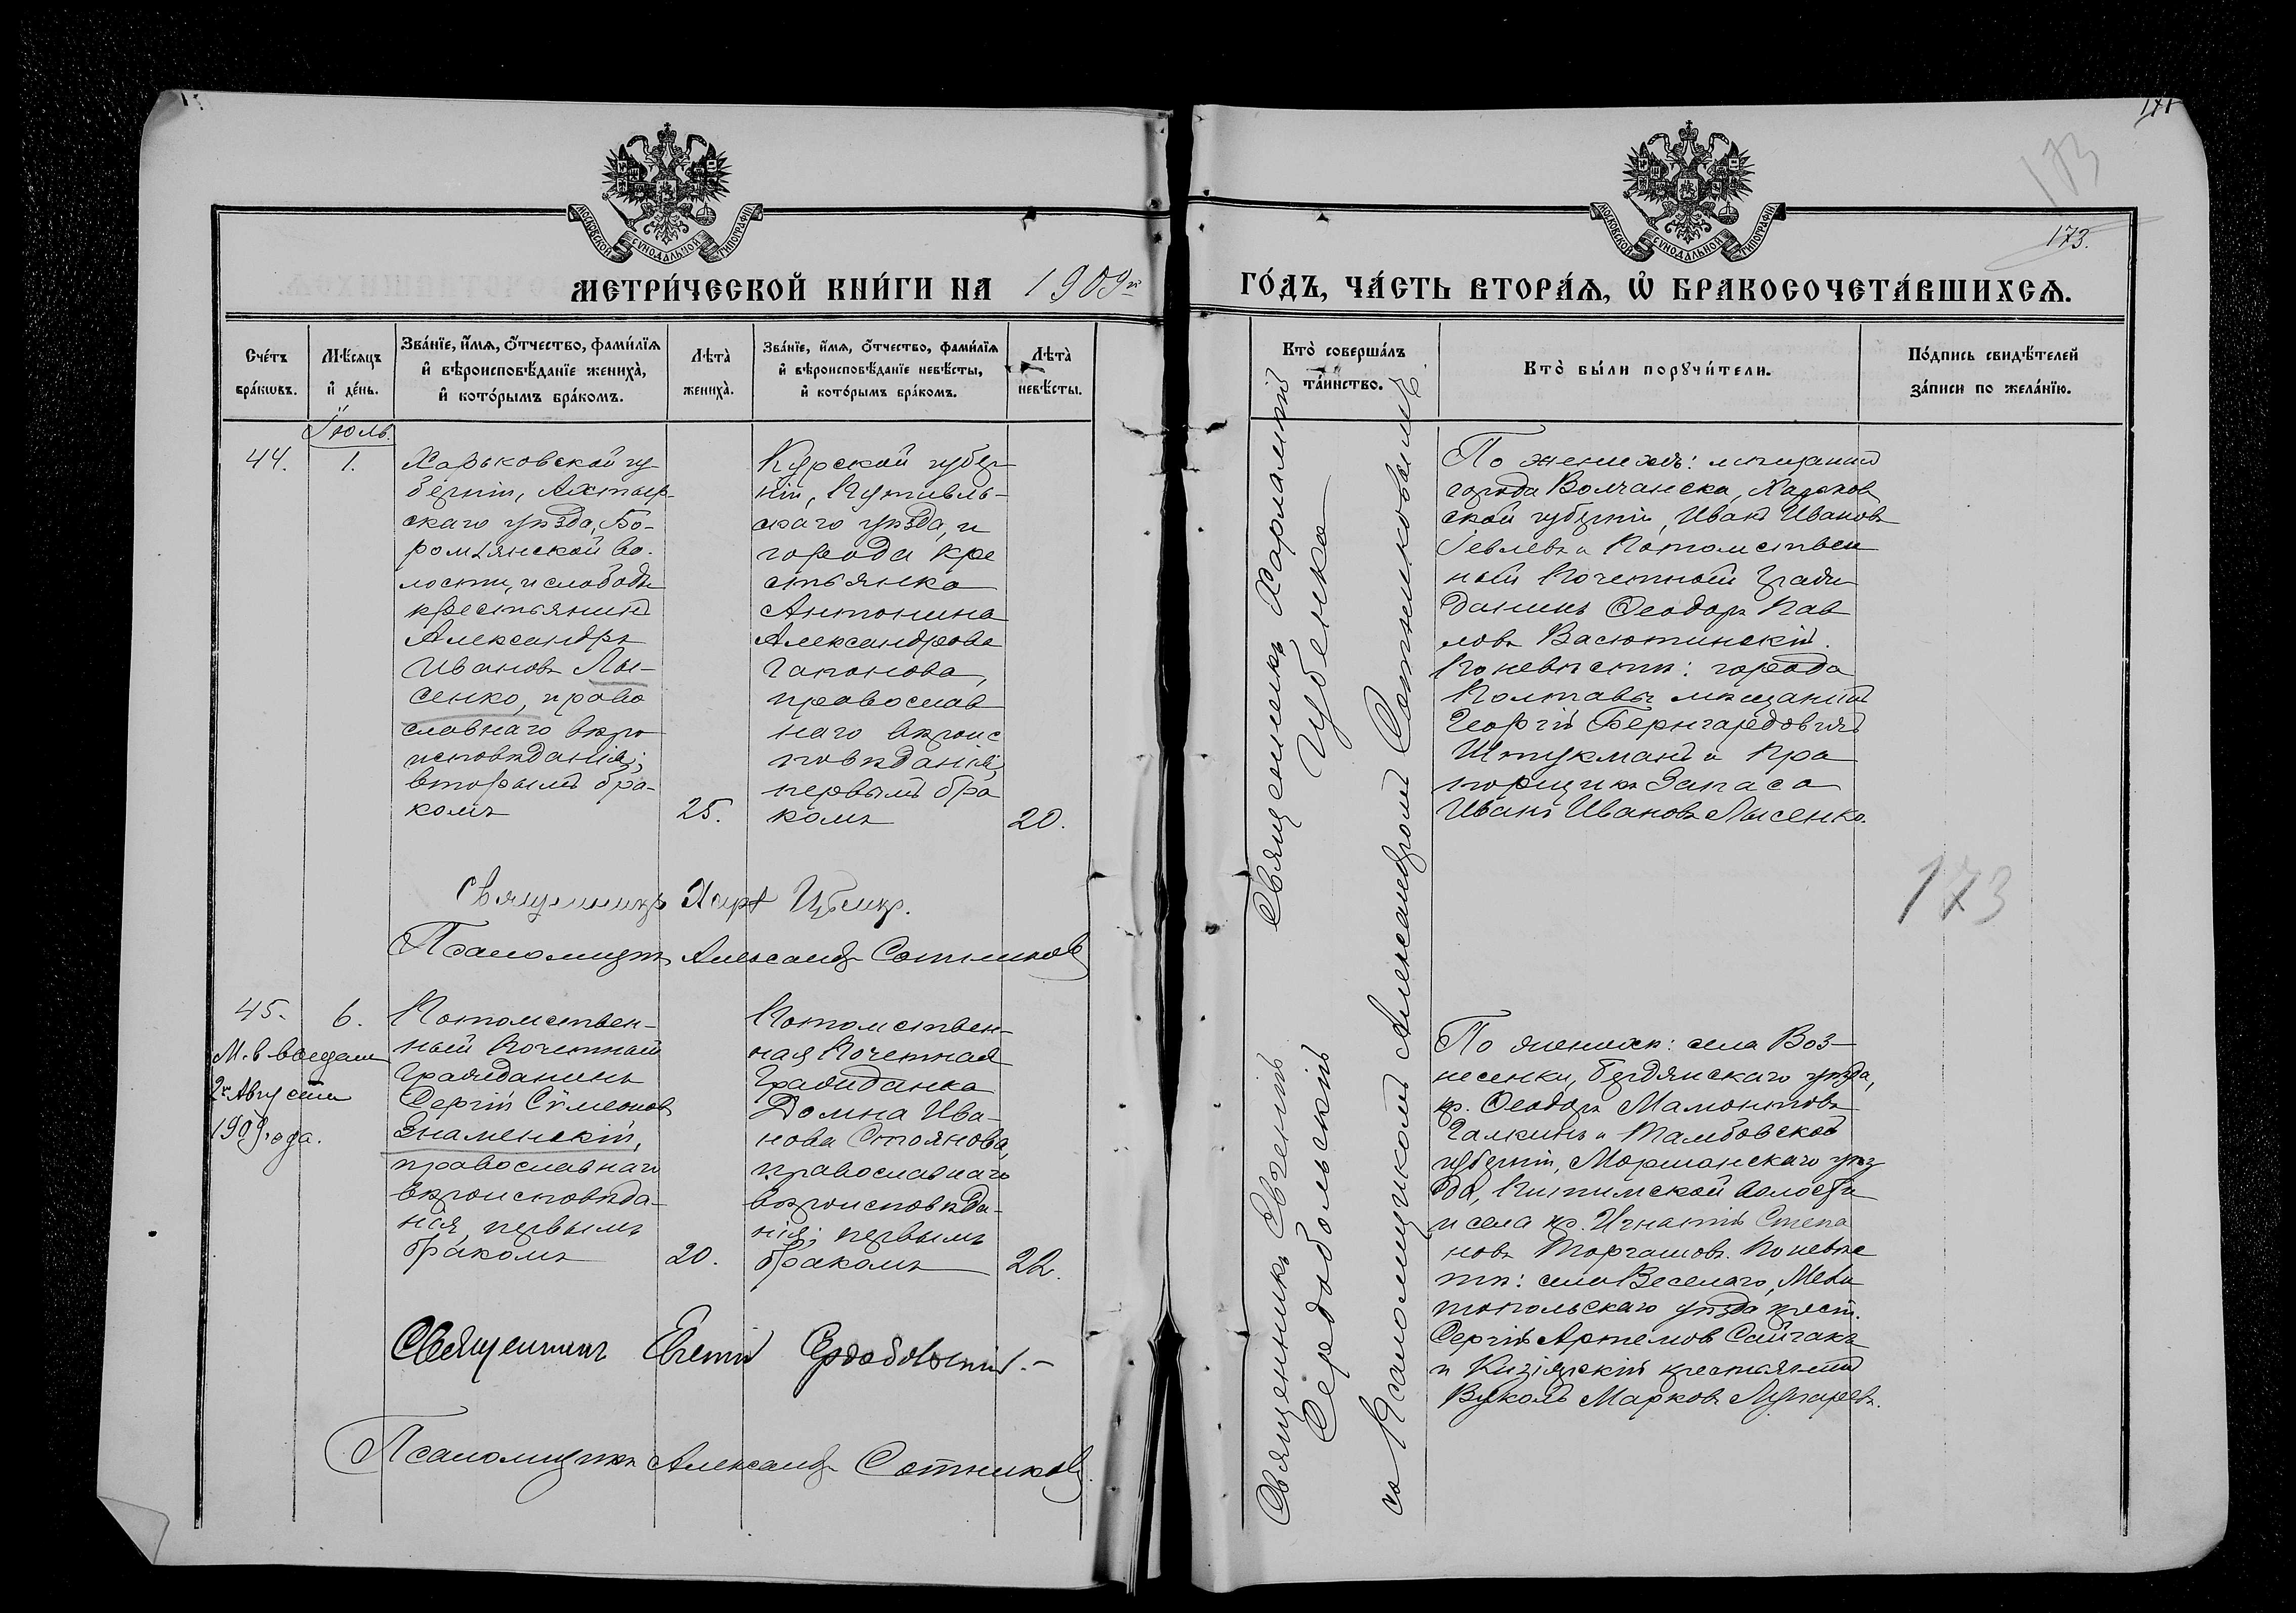 171
173
173.
МОСКОВСКОЙ СУНОДАЛЬНОЙ ТИПОГРАФІИ
МОСКОВСКОЙ СУНОДАЛЬНОЙ ТИПОГРАФІИ
МЕТРИ́ЧЕСКОЙ КНИ́ГИ НА 1909й
ГО́ДЪ, ЧА́СТЬ ВТОРА́Ѧ, Ѡ҆ БРАКОСОЧЕТА́ВШИХСѦ.
Сче́тъ
бра́кѡвъ.
Мѣ́сяцъ
и҆ де́нь.
Зва́нїе, и҆́мѧ, ѻ҆́тчество, фами́лїѧ
и҆ вѣроисповѣ́данїе жениха̀,
и҆ кото́рымъ бра́комъ.
Лѣта̀
жениха̀.
Зва́нїе, и҆́мѧ, ѻ҆́тчество, фами́лїѧ
и҆ вѣроисповѣ́данїе невѣ́сты,
и҆ кото́рымъ бра́комъ.
Лѣта̀
невѣ́сты.
Кто̀ соверша́лъ
та́инство.
Кто̀ бы́ли порꙋчи́тели.
По́дпись свидѣ́телей
за́писи по жела́нїю.
Іюль.
44.
1.
Харьковской гу-
берніи, Ахтыр-
скаго уѣзда, Бо-
ромлянской во-
лости, и слободы
крестьянинъ
Александръ
Ивановъ Лы-
сенко, право
славнаго вѣро
исповѣданія;
вторымъ бра-
комъ
25.
Курской губер-
ніи, Путивль-
скаго уѣзда, и
города кре
стьянка
Антонина
Александрова
Гапонова,
православ
наго вѣроис
повѣданія,
первымъ бра
комъ
20.
Священникъ Харлампій
Цубенко
По женихѣ: мѣщанинъ
города Волчанска, Харьков
ской губерніи, Иванъ Ивановъ
Іевлевъ и Потомствен
ный Почетный Гражи
данинъ Ѳеодоръ Пав
ловъ Васютинскій.
По невѣстѣ: города
Полтавы мѣщанинъ
Георгій Бернгардовичъ
Штукманъ и Пра
порщикъ Запаса
Иванъ Ивановъ Лысенко.
173
Священникъ Харл
Псаломщикъ Александръ Сотниковъ
45.
6.
М. в выдан
2го Августа
1909 года.
Потомствен-
ный Почетный
Гражданинъ
Сергій Сѵмеоновъ
Знаменскій,
православнаго
вѣроисповѣда-
нія, первымъ
бракомъ
20.
Потомствен-
ная Почетная
Гражиданка
Домна Ива-
нова Стоянова,
православнаго
вѣроисповѣда-
нія; первымъ
бракомъ
22.
Священникъ Евгеній
Середобольскій
съ Псаломщикомъ Александромъ Сотниковымъ.
По женихѣ: села Воз-
несенки, Бердянскаго уѣзда,
кр. Ѳеодоръ Мамонтовъ
Галкинъ и Тамбовской
губерніи, Моршанскаго уѣз
да, волости
и села кр. Игнатій Степа
новъ Торгашовъ. По невѣс
тѣ: села Веселаго, Мели
топольскаго уѣзда крест.
Сергій Артемовъ Сайгакъ
и крестьянинъ
Вуколъ Марковъ
Священникъ Евгеній Середобольскій.-
Псаломщикъ Александръ Сотниковъ.